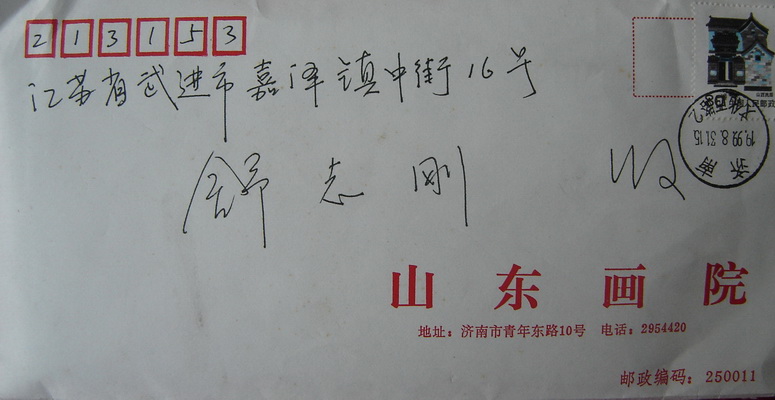 213153
江苏省武进市嘉泽镇中街16号
舒志刚 收
山东画院
地址：济南市青年东路10号 电话：2954420
邮政编码：250011
中国人民邮政
济南
1999.8.31.15